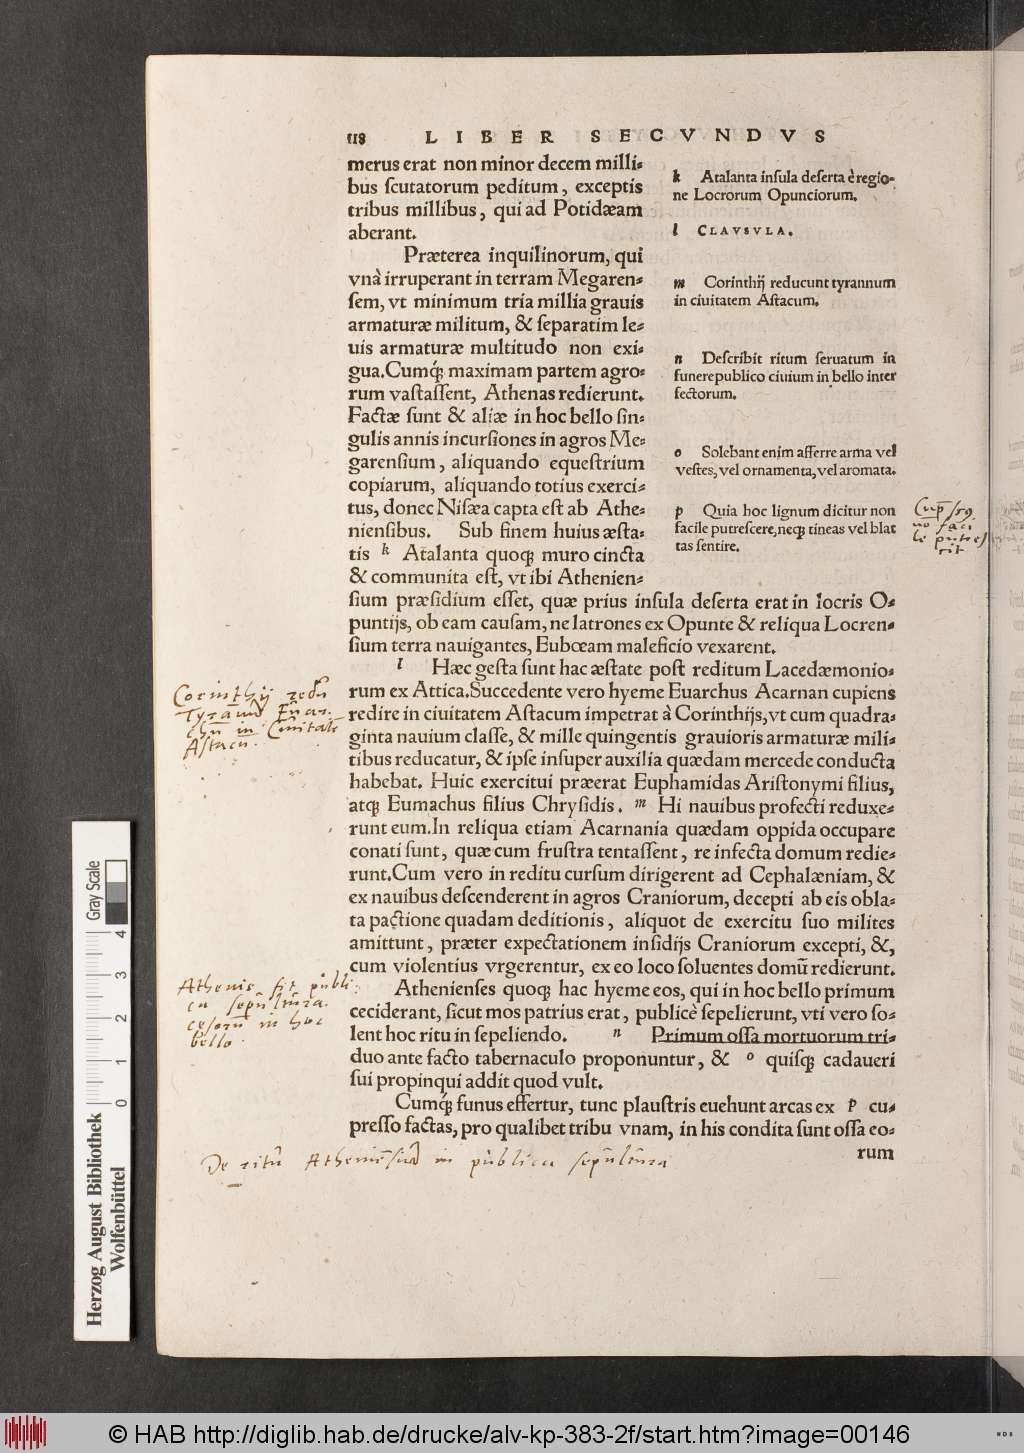 118 LIBER SECVNDVS
merus erat non minor decem milli-
bus scutatorum peditum, exceptis
tribus millibus, qui ad Potidæam
aberant.
Præterea inquilinorum, qui
vnà irruperant in terram Megaren-
sem, vt minimum tria millia grauis
armaturæ militum, & separatim le-
uis armaturæ multitudo non exi-
gua. Cumq́; maximam partem agro-
rum vastassent, Athenas redierunt.
Factæ sunt & aliæ in hoc bello sin-
gulis annis incursiones in agros Me-
garensium, aliquando equestrium
copiarum, aliquando totius exerci-
tus, donec Nisæa capta est ab Athe-
niensibus. Sub finem huius æsta-
tis k Atalanta quoq; muro cincta
& communita est, vt ibi Athenien-
sium præsidium esset, quæ prius insula deserta erat in locris O-
puntijs, ob eam causam, ne latrones ex Opunte & reliqua Locren-
sium terra nauigantes, Eubœam maleficio vexarent.
l Hæc gesta sunt hac æstate post reditum Lacedæmonio-
rum ex Attica. Succedente vero hyeme Euarchus Acarnan cupiens
redire in ciuitatem Astacum impetrat à Corinthijs, vt cum quadra-
ginta nauium classe, & mille quingentis grauioris armaturæ mili-
tibus reducatur, & ipse insuper auxilia quædam mercede conducta
habebat. Huic exercitui præerat Euphamidas Aristonymi filius,
atq; Eumachus filius Chrysidis. m Hi nauibus profecti reduxe-
runt eum. In reliqua etiam Acarnania quædam oppida occupare
conati sunt, quæ cum frustra tentassent, re infecta domum redie-
runt. Cum vero in reditu cursum dirigerent ad Cephalæniam, &
ex nauibus descenderent in agros Craniorum, decepti ab eis obla-
ta pactione quadam deditionis, aliquot de exercitu suo milites
amittunt, præter expectationem insidijs Craniorum excepti, &,
cum violentius vrgerentur, ex eo loco soluentes domū redierunt.
Athenienses quoq; hac hyeme eos, qui in hoc bello primum
ceciderant, sicut mos patrius erat, publicè sepelierunt, vti vero so-
lent hoc ritu in sepeliendo. n Primum ossa mortuorum tri-
duo ante facto tabernaculo proponuntur, & o quisq; cadaueri
sui propinqui addit quod vult.
Cumq́; funus effertur, tunc plaustris euehunt arcas ex p cu-
presso factas, pro qualibet tribu vnam, in his condita sunt ossa eo-
rum
k Atalanta insula deserta è regio-
ne Locrorum Opunciorum.
l CLAVSVLA.
m Corinthij reducunt tyrannum
in ciuitatem Astacum.
n Describit ritum seruatum in
funere publico ciuium in bello inter
fectorum.
o Solebant enim afferre arma vel
vestes, vel ornamenta, vel aromata.
p Quia hoc lignum dicitur non
facile putrescere, neq; tineas vel blat
tas sentire.
no faci
le putres
cit
Corinthij
Tyrannū Euar
chū in Ciuitatē
Astacū.
Athenis fit publi
ca sepultura
cesorū in hoc
bello.
De ritu Atheniēsiū in publica sepultura
Herzog August Bibliothek
Wolfenbüttel
Gray Scale
0 1 2 3 4
© HAB http://diglib.hab.de/drucke/alv-kp-383-2f/start.htm?image=00146